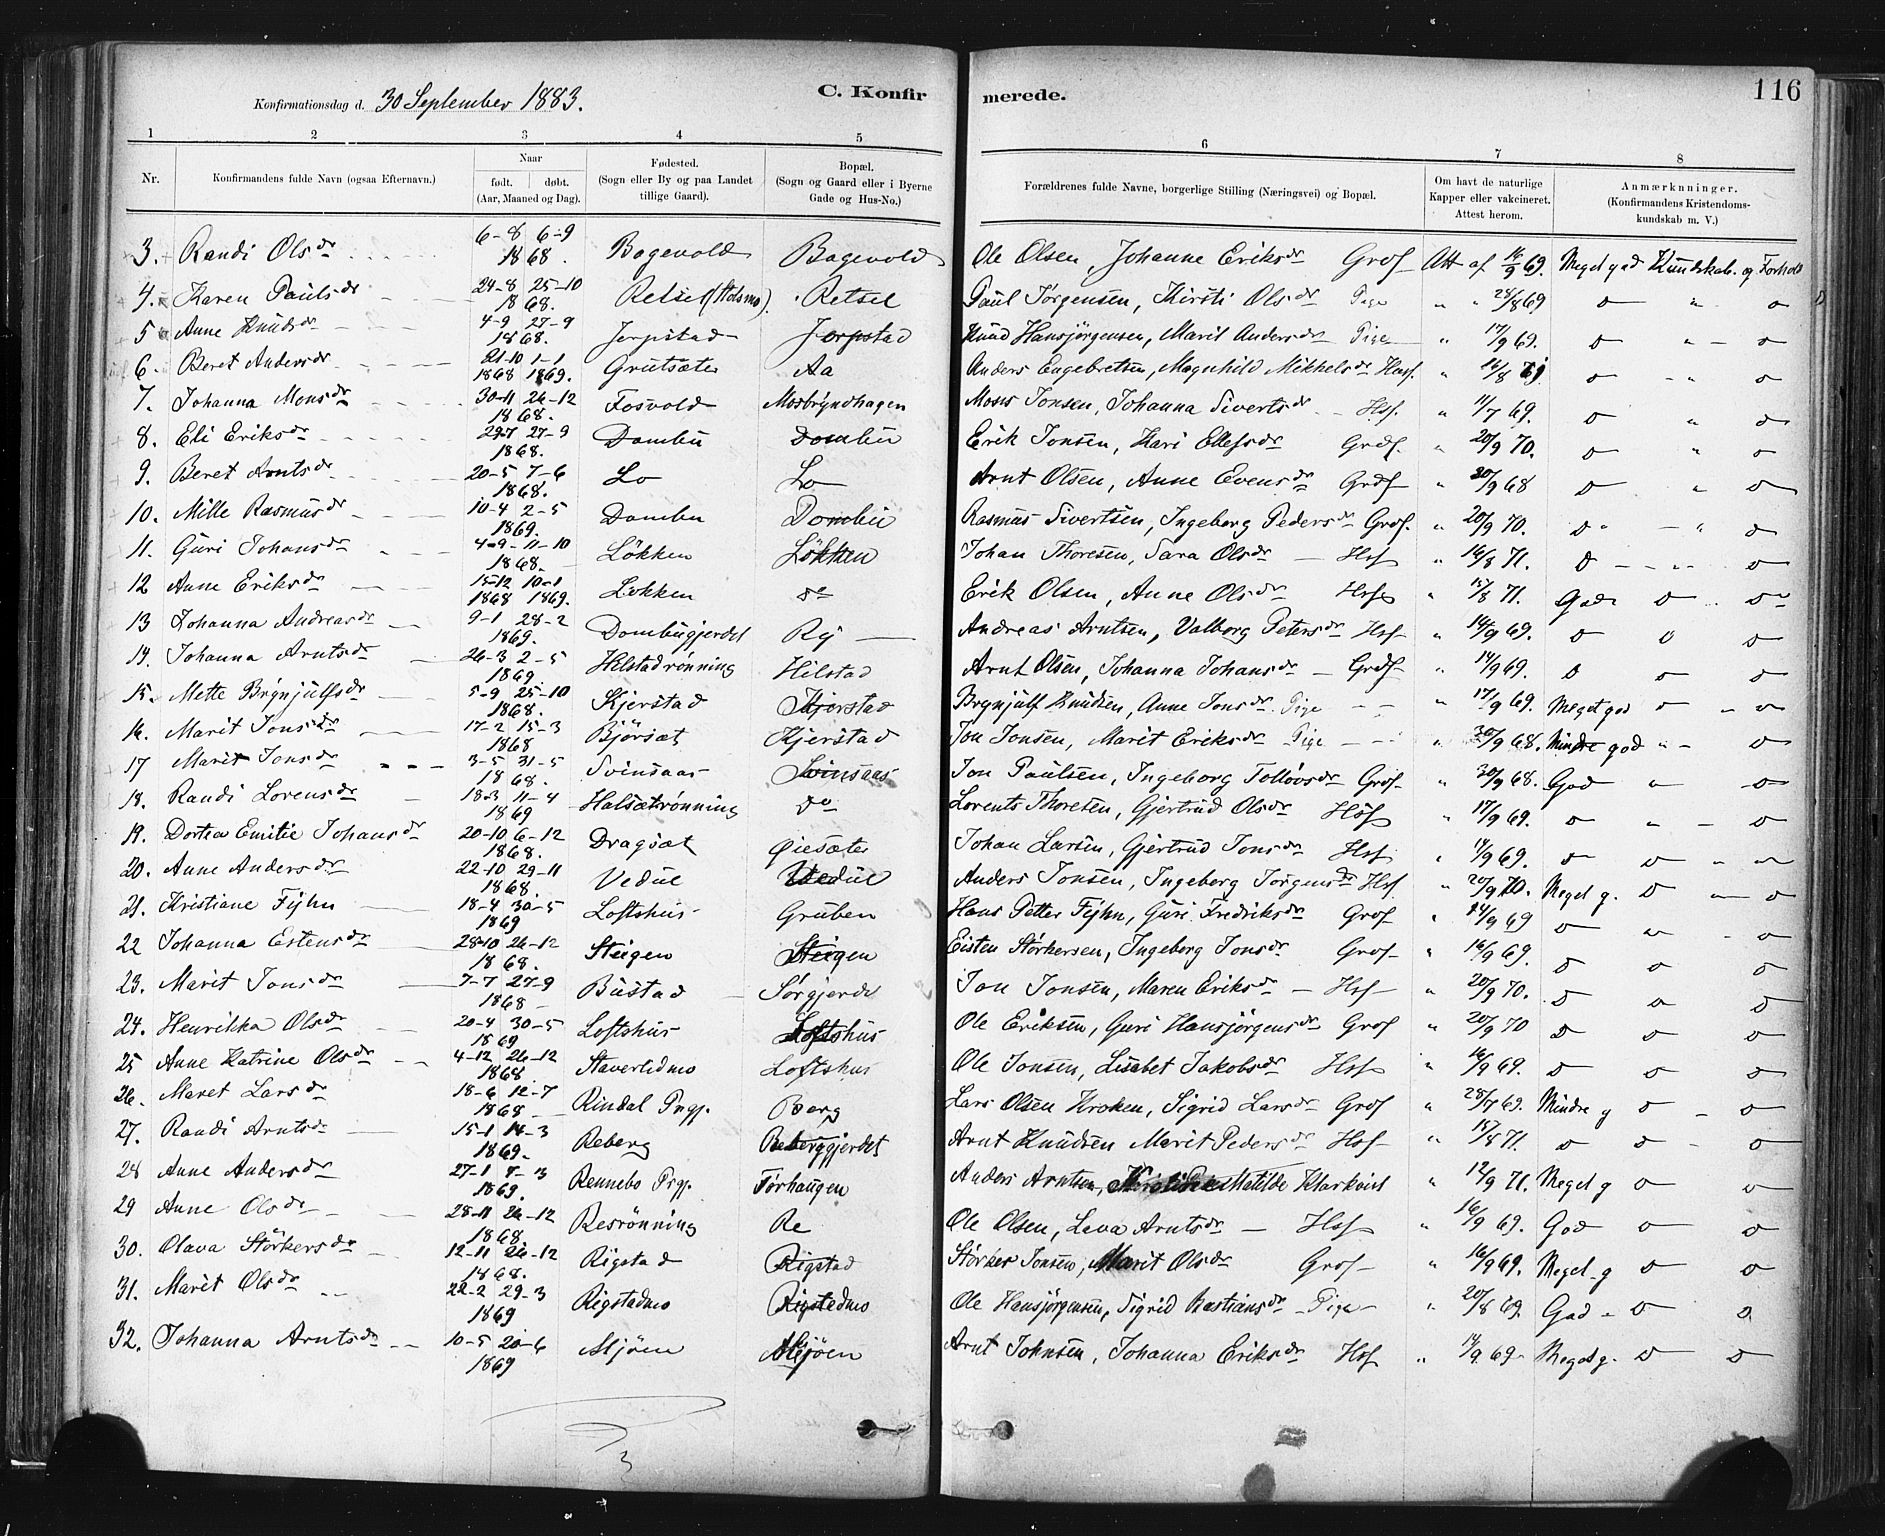 Konfirmationsdag d. 30 September 1883. C. Konfirmerede. 116
1 2 3 4 5 6 7 8
Nr. Konfirmandens fulde Navn (ogsaa Efternavn.) Naar født. døbt. (Aar, Maaned og Dag). Fødested. (Sogn eller By og paa Landet tillige Gaard). Bopæl. (Sogn og Gaard eller i Byerne Gade og Hus-No.) Forældrenes fulde Navne, borgerlige Stilling (Næringsvei) og Bopæl. Om havt de naturlige Kapper eller vakcineret. Attest herom. Anmærkninger. (Konfirmandens Kristendomskundskab m. V.)
3. Randi Olsdr 6-8 6-9 1868. Bagevold Bagevold Ole Olsen, Johanne Eriksdr Grdf Att af 16/9 69. Meget god Kundskab. og Forhold
4. Karen Paulsdr 24-8 25-10 1868. Retsel (Holsmo). Retsel Paul Jørgensen, Kirsti Olsdr Pige " " 28/8 69 do " do
5 Anne Knudsdr 4-9 27-9 1868. Jerpstad Jerpstad Knud Hansjørgensen, Marit Andersdr Pige " 17/9 69. do " do
6. Beret Andersdr 21-10 1-1 1868 1869. Grutsæter Aa Anders Engebretsen, Magnhild Mikkelsdr Husf. " 16/8 71 do " do
7. Johanna Monsdr 30-11 26-12 1868. Fosvold Mosbryndhagen Mons Jonsen, Johanna Sivertsdr Hsf. " 11/7 69. do " do
8. Eli Eriksdr 29-7 27-9 1868. Dombu Dombu Erik Jonsen, Kari Ellefsdr Grdf. " 20/9 70. do " do
9. Beret Arntsdr 20-5 7-6 1868. Lo Lo Arnt Olsen, Anne Evensdr Grdf " 30/9 68 do " do
10. Mille Rasmusdr 10-4 2-5 1869. Dombu Dombu Rasmus Sivertsen, Ingeborg Pedersdr Grdf. " 20/9 70. do " do
11. Guri Johansdr 4-9 11-10 1868. Løkken Løkken Johan Thoresen, Sara Olsdr Hsf " 16/8 71. do " do
12 Anne Eriksdr 15-12 10-1 1868 1869. Løkken do Erik Olsen, Anne Olsdr Hsf " 15/8 71. God do do
13 Johanna Andreasdr 9-1 28-2 1869. Dombugjerdet Ry Andreas Arntsen, Valborg Petersdr Hsf " 14/9 69. do do do
14. Johanna Arntsdr 26-3 2-5 1869 Helstadrønning Hilstad Arnt Olsen, Johanna Johansdr Grdf " 14/9 69. do do do
15. Mette Brynjulfsdr 5-9 25-10 1868. Kjerstad Kjerstad Brynjulf Knudsen, Anne Jonsdr Pige " 17/9 69. Meget god do do
16. Marit Jonsdr 17-2 15-3 1868 Bjørsæt Kjerstad Jon Jonsen, Marit Eriksdr Pige " 30/9 68. Mindre god " do
17 Marit Jonsdr 3-5 31-5 1868. Svinsaas Svinsaas Jon Paulsen, Ingeborg Tolløvsdr Grdf " 30/9 68. God " do
18. Randi Lorensdr 18-3 11-4 1869 Halsætrønning do Lorents Thoresen, Gjertrud Olsdr Hsf " 17/9 69. do " do
19. Dortea Emilie Johansdr 20-10 6-12 1868. Dragsæt Øiesæter Johan Larsen, Gjertrud Jonsdr Hsf " 17/9 69. do do do
20. Anne Andersdr 22-10 29-11 1868. Vedul Vedul Anders Jonsen, Ingeborg Jørgensdr Hsf " 20/9 70. Meget g. do do
21. Kristiane Fyhn 18-4 30-5 1869 Loftshus Gruben Hans Petter Fyhn, Guri Fredriksdr Grdf " 14/9 69 do do do
22 Johanna Estensdr 28-10 26-12 1868. Steigen Steigen Eisten Størkersen, Ingeborg Jonsdr Grdf " 16/9 69. do do do
23. Marit Jonsdr 7-7 27-9 1868 Bustad Sørgjerdet Jon Jonsen, Maren Eriksdr Hsf " 20/9 70. do do do
24. Henrikka Olsdr 20-4 30-5 1869 Loftshus Loftshus Ole Eriksen, Guri Hansjørgensdr Grdf " 20/9 70 do do do
25 Anne Katrine Olsdr 4-12 26-12 1868 Staverlidmo Loftshus Ole Jonsen, Lisabet Jakobsdr Hsf " 16/9 69. do do do
26. Maret Larsdr 18-6 12-7 1868 Rindal Prgj. Berg Lars Olsen Kroken, Sigrid Larsdr Grdf " 28/7 69. Mindre g do do
27. Randi Arntsdr 15-1 14-3 1869. Reberg Reberggjerdet Arnt Knudsen Marit Pedersdr Hsf " 15/8 71. do do do
28 Anne Andersdr 27-1 7-3 1869. Rennebo Prgj. Førhaugen Anders Arntsen, Matilde Klarkvist " 12/9 71. Meget g do do
29 Anne Olsdr 28-11 26-12 1868. Resrønning Re Ole Olsen, Lava Arntsdr Hsf " 16/9 69. God do do
30. Olava Størkersdr 12-11 26-12 1868. Rigstad Rigstad Størker Jonsen, Marit Olsdr Grdf " 16/9 69. Meget g do do
31. Marit Olsdr 22-2 29-3 1869 Rigstadmo Rigstadmo Ole Hansjørgensen, Sigrid Bastiansdr Pige " 20/8 69. God do do
32. Johanna Arntsdr 10-5 20-6 1869 Mjøen Mjøen Arnt Johnsen, Johanna Eriksdr Hsf " 14/9 69 Meget g. do do